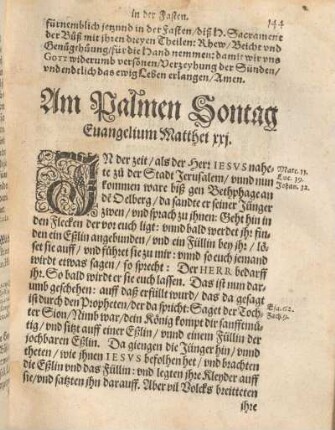 in der Fasten.
144
fürnemblich jezund in der Fasten / diß H. Sacrament
der Bůß mit ihren dreyen Theilen: Rhew / Beicht vnd
Genůgthůung / für die Hand nemmen: damit wir vns
GOTT widerumb versönen / Verzeyhung der Sünden /
vnd endtlich das ewig Leben erlangen / Amen.
Am Palmen Sontag
Euangelium Matthei xxj.
IN der zeit / als der Herr IESVS nahe-
te zů der Stadt Jerusalem / vnnd nun
kommen ware biß gen Bethphage an
dē Oelberg / da sandte er seiner Jünger
zwen / vnd sprach zu ihnen: Geht hin in
den Flecken der vor euch ligt: vnnd bald werdet jhr fin-
den ein Eßlin angebunden / vnd ein Füllin bey jhr / lö-
set sie auff / vnd führet sie zu mir: vnnd so euch jemand
wirdt etwas sagen / so sprecht: Der HERR bedarff
jhr. So bald wirdt er sie euch lassen. Das ist nun dar-
umb geschehen: auff daß erfüllt wurd / das da gesagt
ist durch den Propheten / der da spricht: Saget der Toch-
ter Sion / Nimb war / dein König kompt dir sanfftmü-
tig / vnd sitzt auff einer Eßlin / vnnd einem Füllin der
jochbaren Eßlin. Da giengen die Jünger hin / vnnd
theten / wie ihnen IESVS befolhen het / vnd brachten
die Eßlin vnd das Füllin: vnd legten ihre Kleyder auff
sie / vnd satzten jhn darauff. Aber vil Volcks breitteten
ihre
Marc. 11.
Luc. 19.
Johan. 12.
Esa. 62.
Zach. 9.